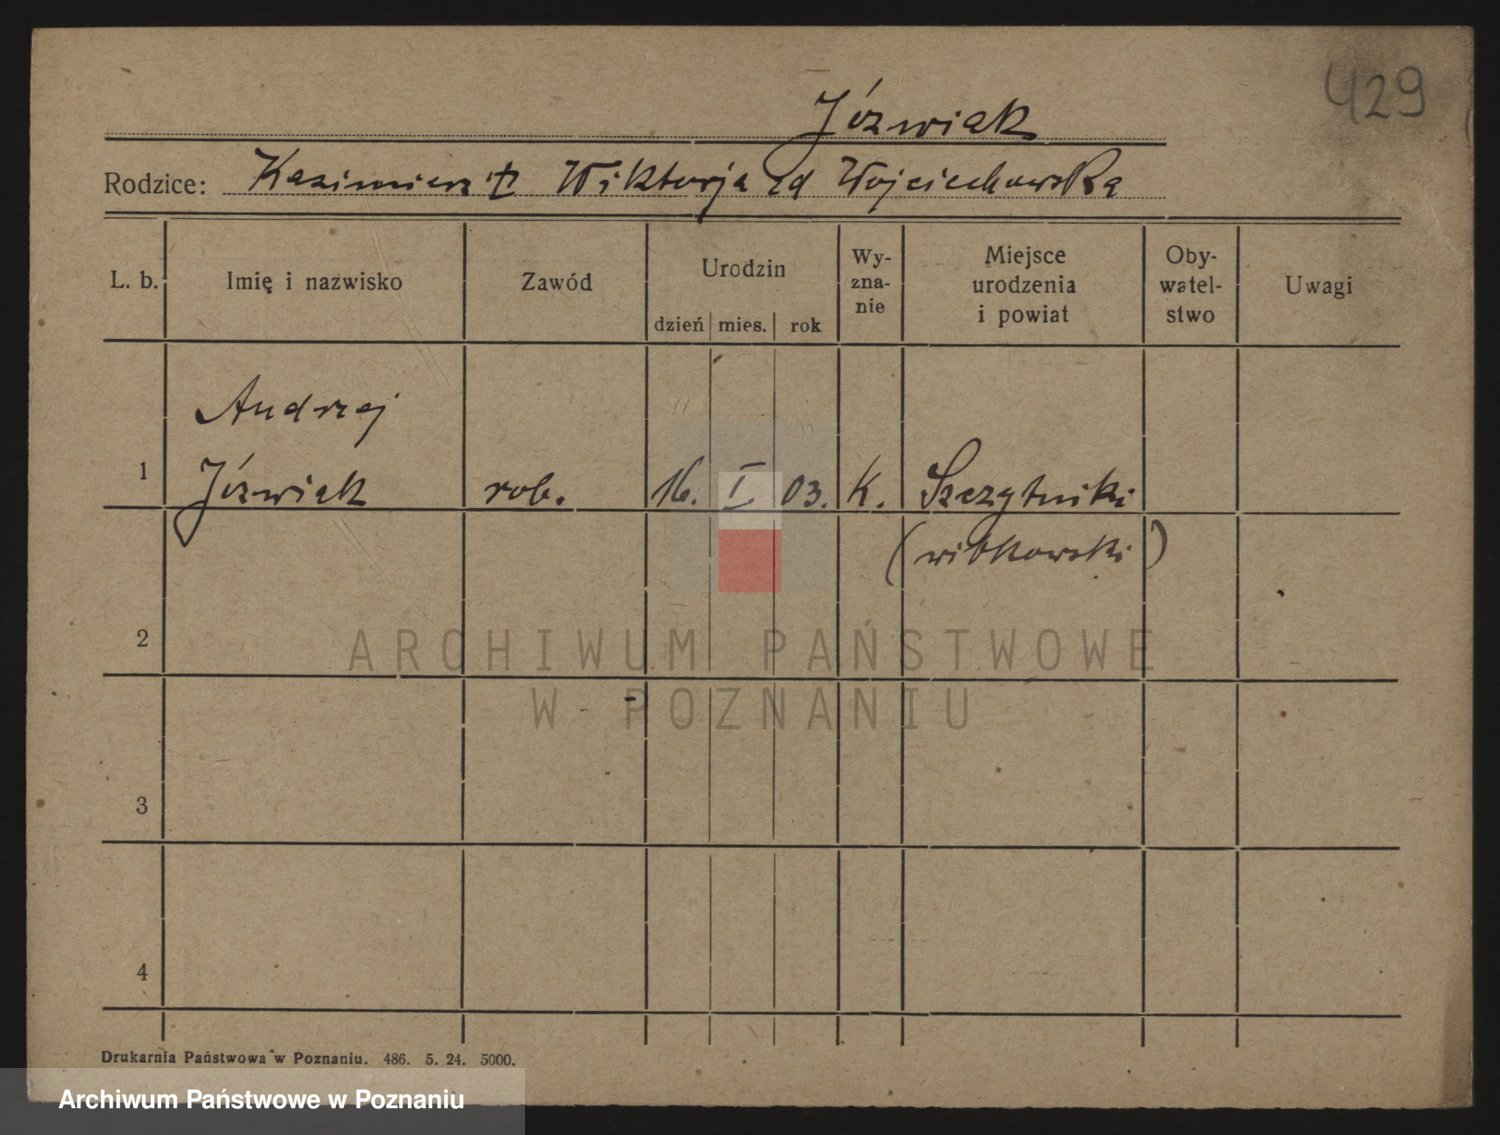 429
Jóźwiak
Rodzice: Kazimierz Wiktorja zd Wojciechowska
L. b. Imię i nazwisko Zawód Urodzin Wy-zna-nie Miejsce urodzenia i powiat Oby-watel-stwo Uwagi
dzień mies. rok
Andrzej
1 Jóźwiak rob. 16. I 03. K. Szczytniki
(witkowski)
2
ARCHIWUM PAŃSTWOWE
W POZNANIU
3
4
Drukarnia Państwowa w Poznaniu. 486. 5. 24. 5000.
Archiwum Państwowe w Poznaniu